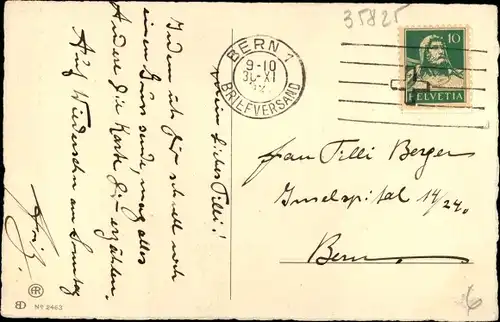 mein liebes Tilli!
Indem ich Dir schnell noch
einen Gruss sende, mag alles
Andere die Karte Dir erzählen.
Auf Wiedersehn am Sonntag
35825
BERN 1
9-10
30.XI
BRIEFVERSAND
10
HELVETIA
Frau Tilli Berger
Inselspital 14/24.
Bern.
No 2463